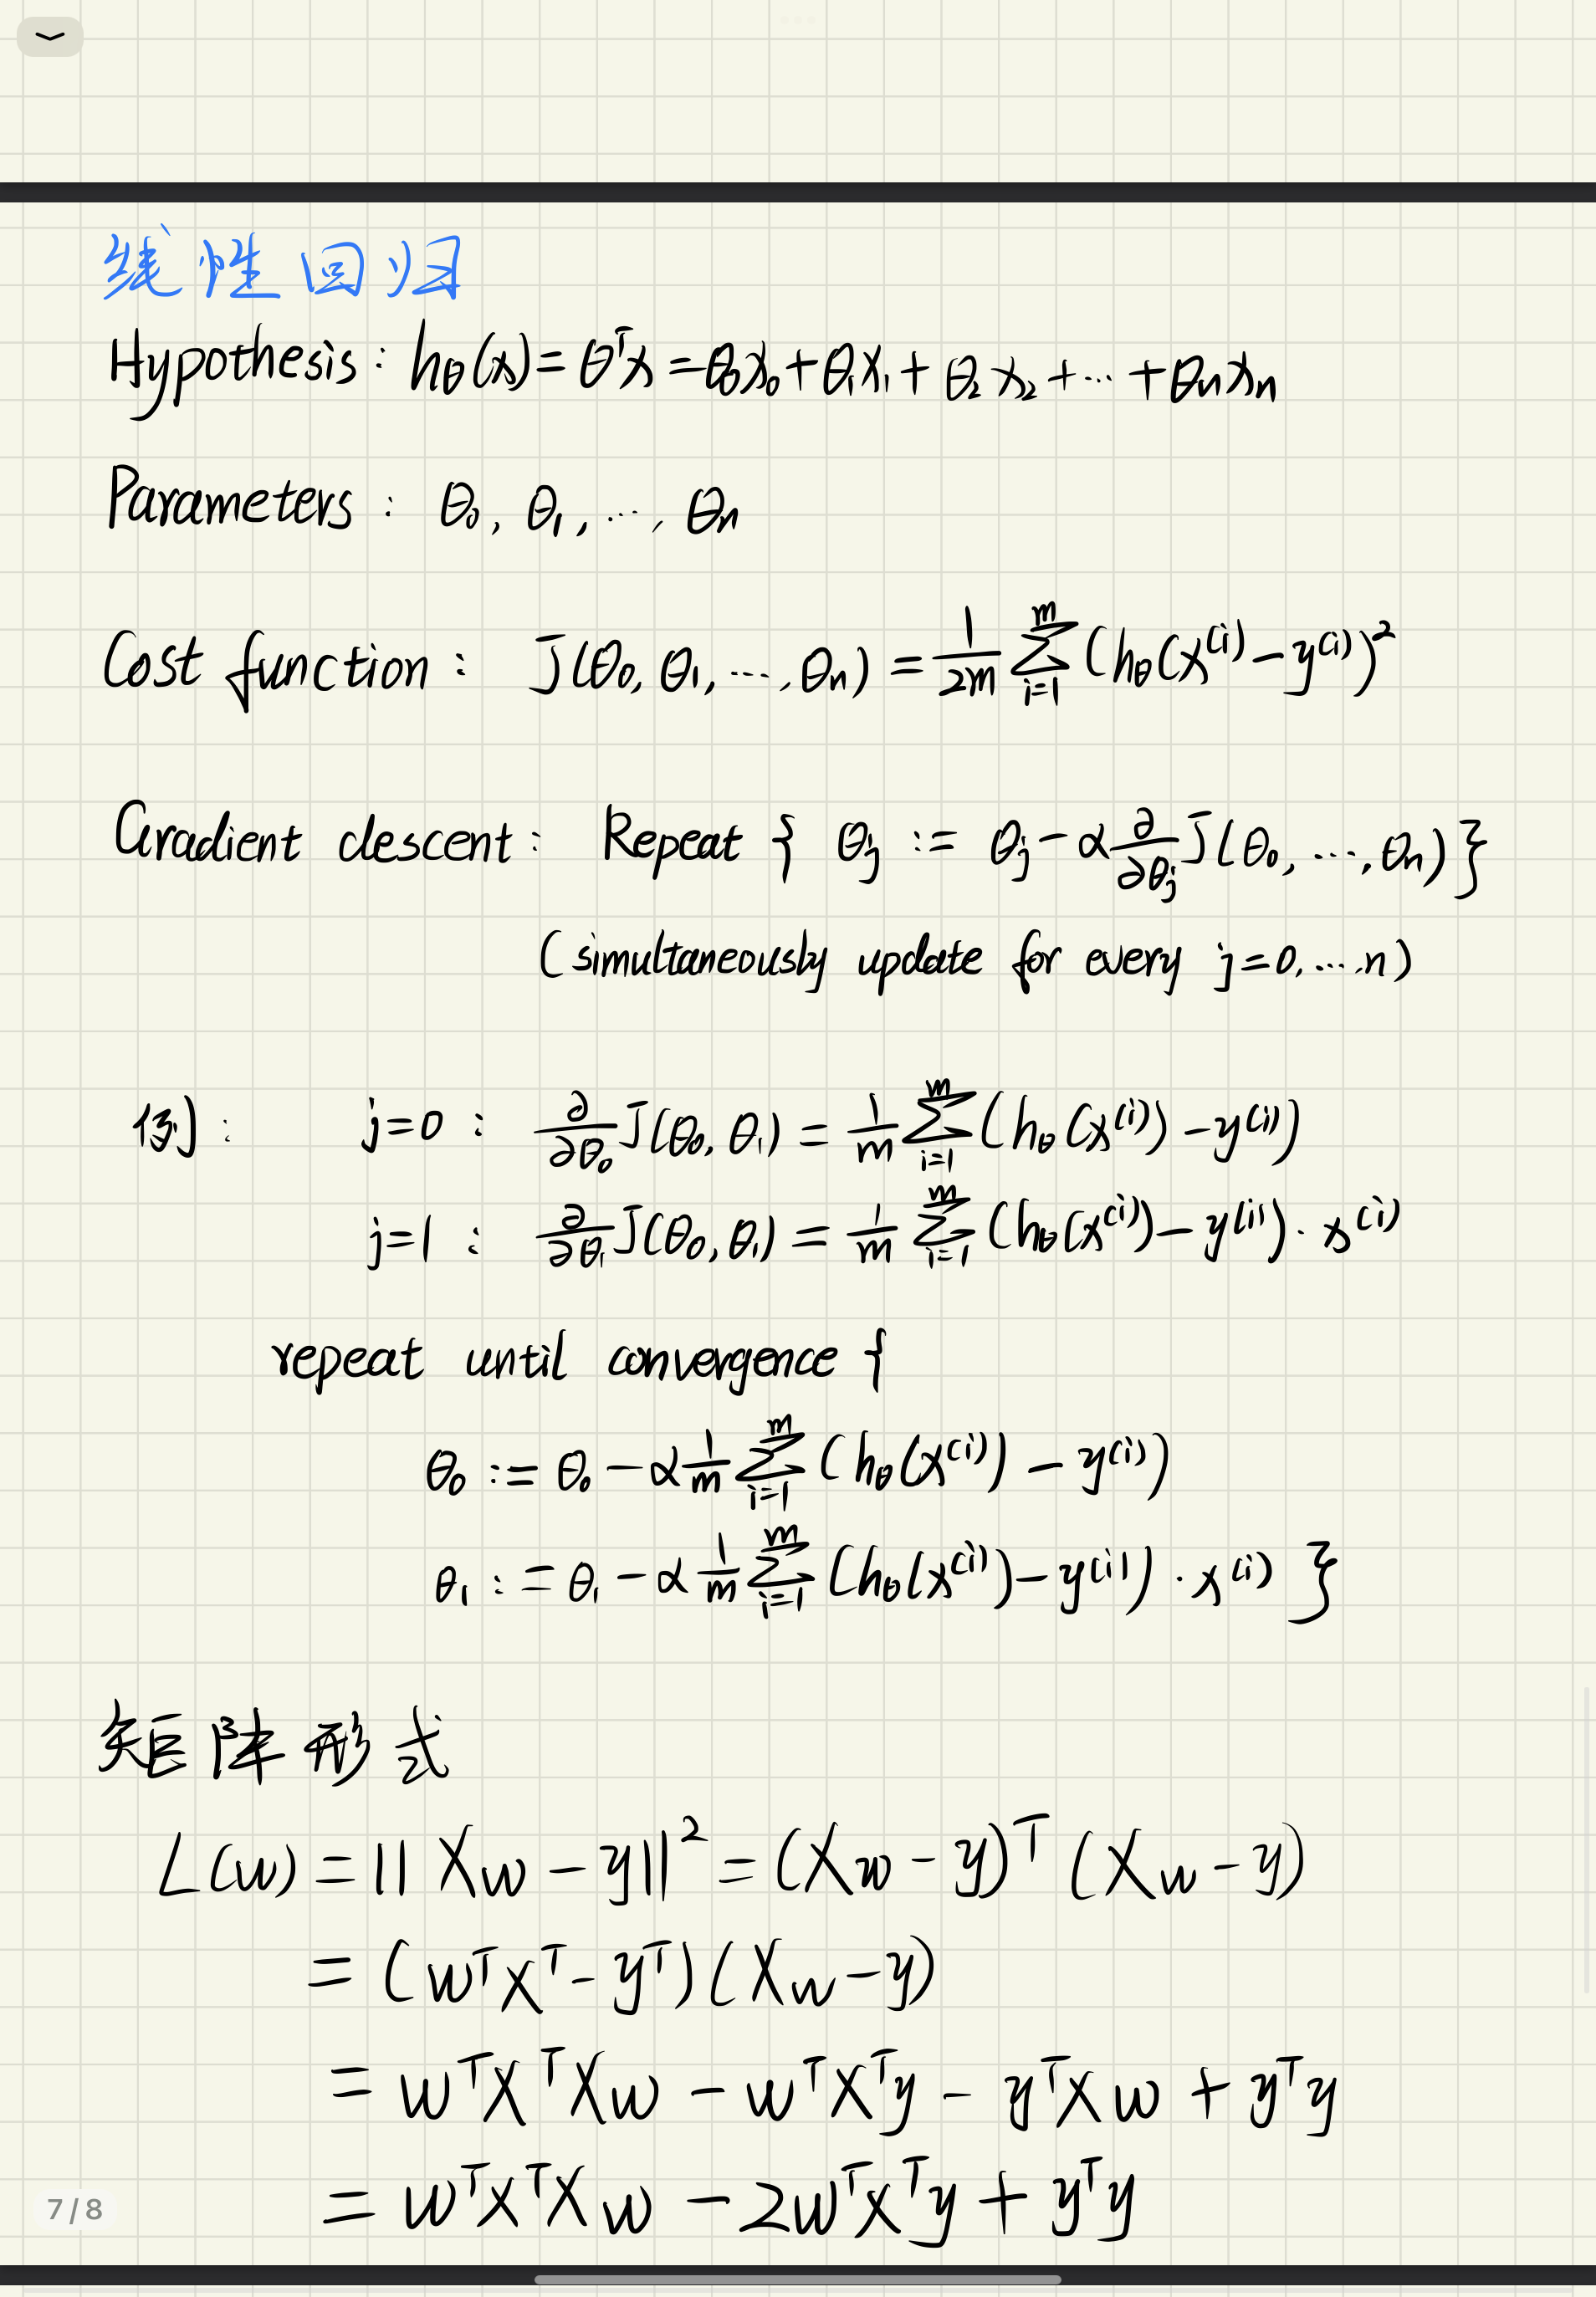 线性回归
Hypothesis: hθ(x) = θᵀx = θ₀x₀ + θ₁x₁ + θ₂x₂ + ⋯ + θₙxₙ
Parameters: θ₀, θ₁, ⋯, θₙ
Cost function: J(θ₀, θ₁, ⋯, θₙ) = 1/2m ∑ᵢ₌₁ᵐ (hθ(x⁽ⁱ⁾ − y⁽ⁱ⁾)²
Gradient descent: Repeat { θⱼ := θⱼ − α ∂/∂θⱼ J(θ₀, ⋯, θₙ) }
(simultaneously update for every j=0, ⋯, n)
例: j=0 : ∂/∂θ₀ J(θ₀, θ₁) = 1/m ∑ᵢ₌₁ᵐ (hθ(x⁽ⁱ⁾) − y⁽ⁱ⁾)
j=1 : ∂/∂θ₁ J(θ₀, θ₁) = 1/m ∑ᵢ₌₁ᵐ (hθ(x⁽ⁱ⁾) − y⁽ⁱ⁾) · x⁽ⁱ⁾
repeat until convergence {
θ₀ := θ₀ − α 1/m ∑ᵢ₌₁ᵐ (hθ(x⁽ⁱ⁾) − y⁽ⁱ⁾)
θ₁ := θ₁ − α 1/m ∑ᵢ₌₁ᵐ (hθ(x⁽ⁱ⁾) − y⁽ⁱ⁾) · x⁽ⁱ⁾ }
矩阵形式
L(w) = ||Xw − y||² = (Xw − y)ᵀ (Xw − y)
= (wᵀXᵀ − yᵀ)(Xw − y)
= wᵀXᵀXw − wᵀXᵀy − yᵀXw + yᵀy
= wᵀXᵀXw − 2wᵀXᵀy + yᵀy
7/8